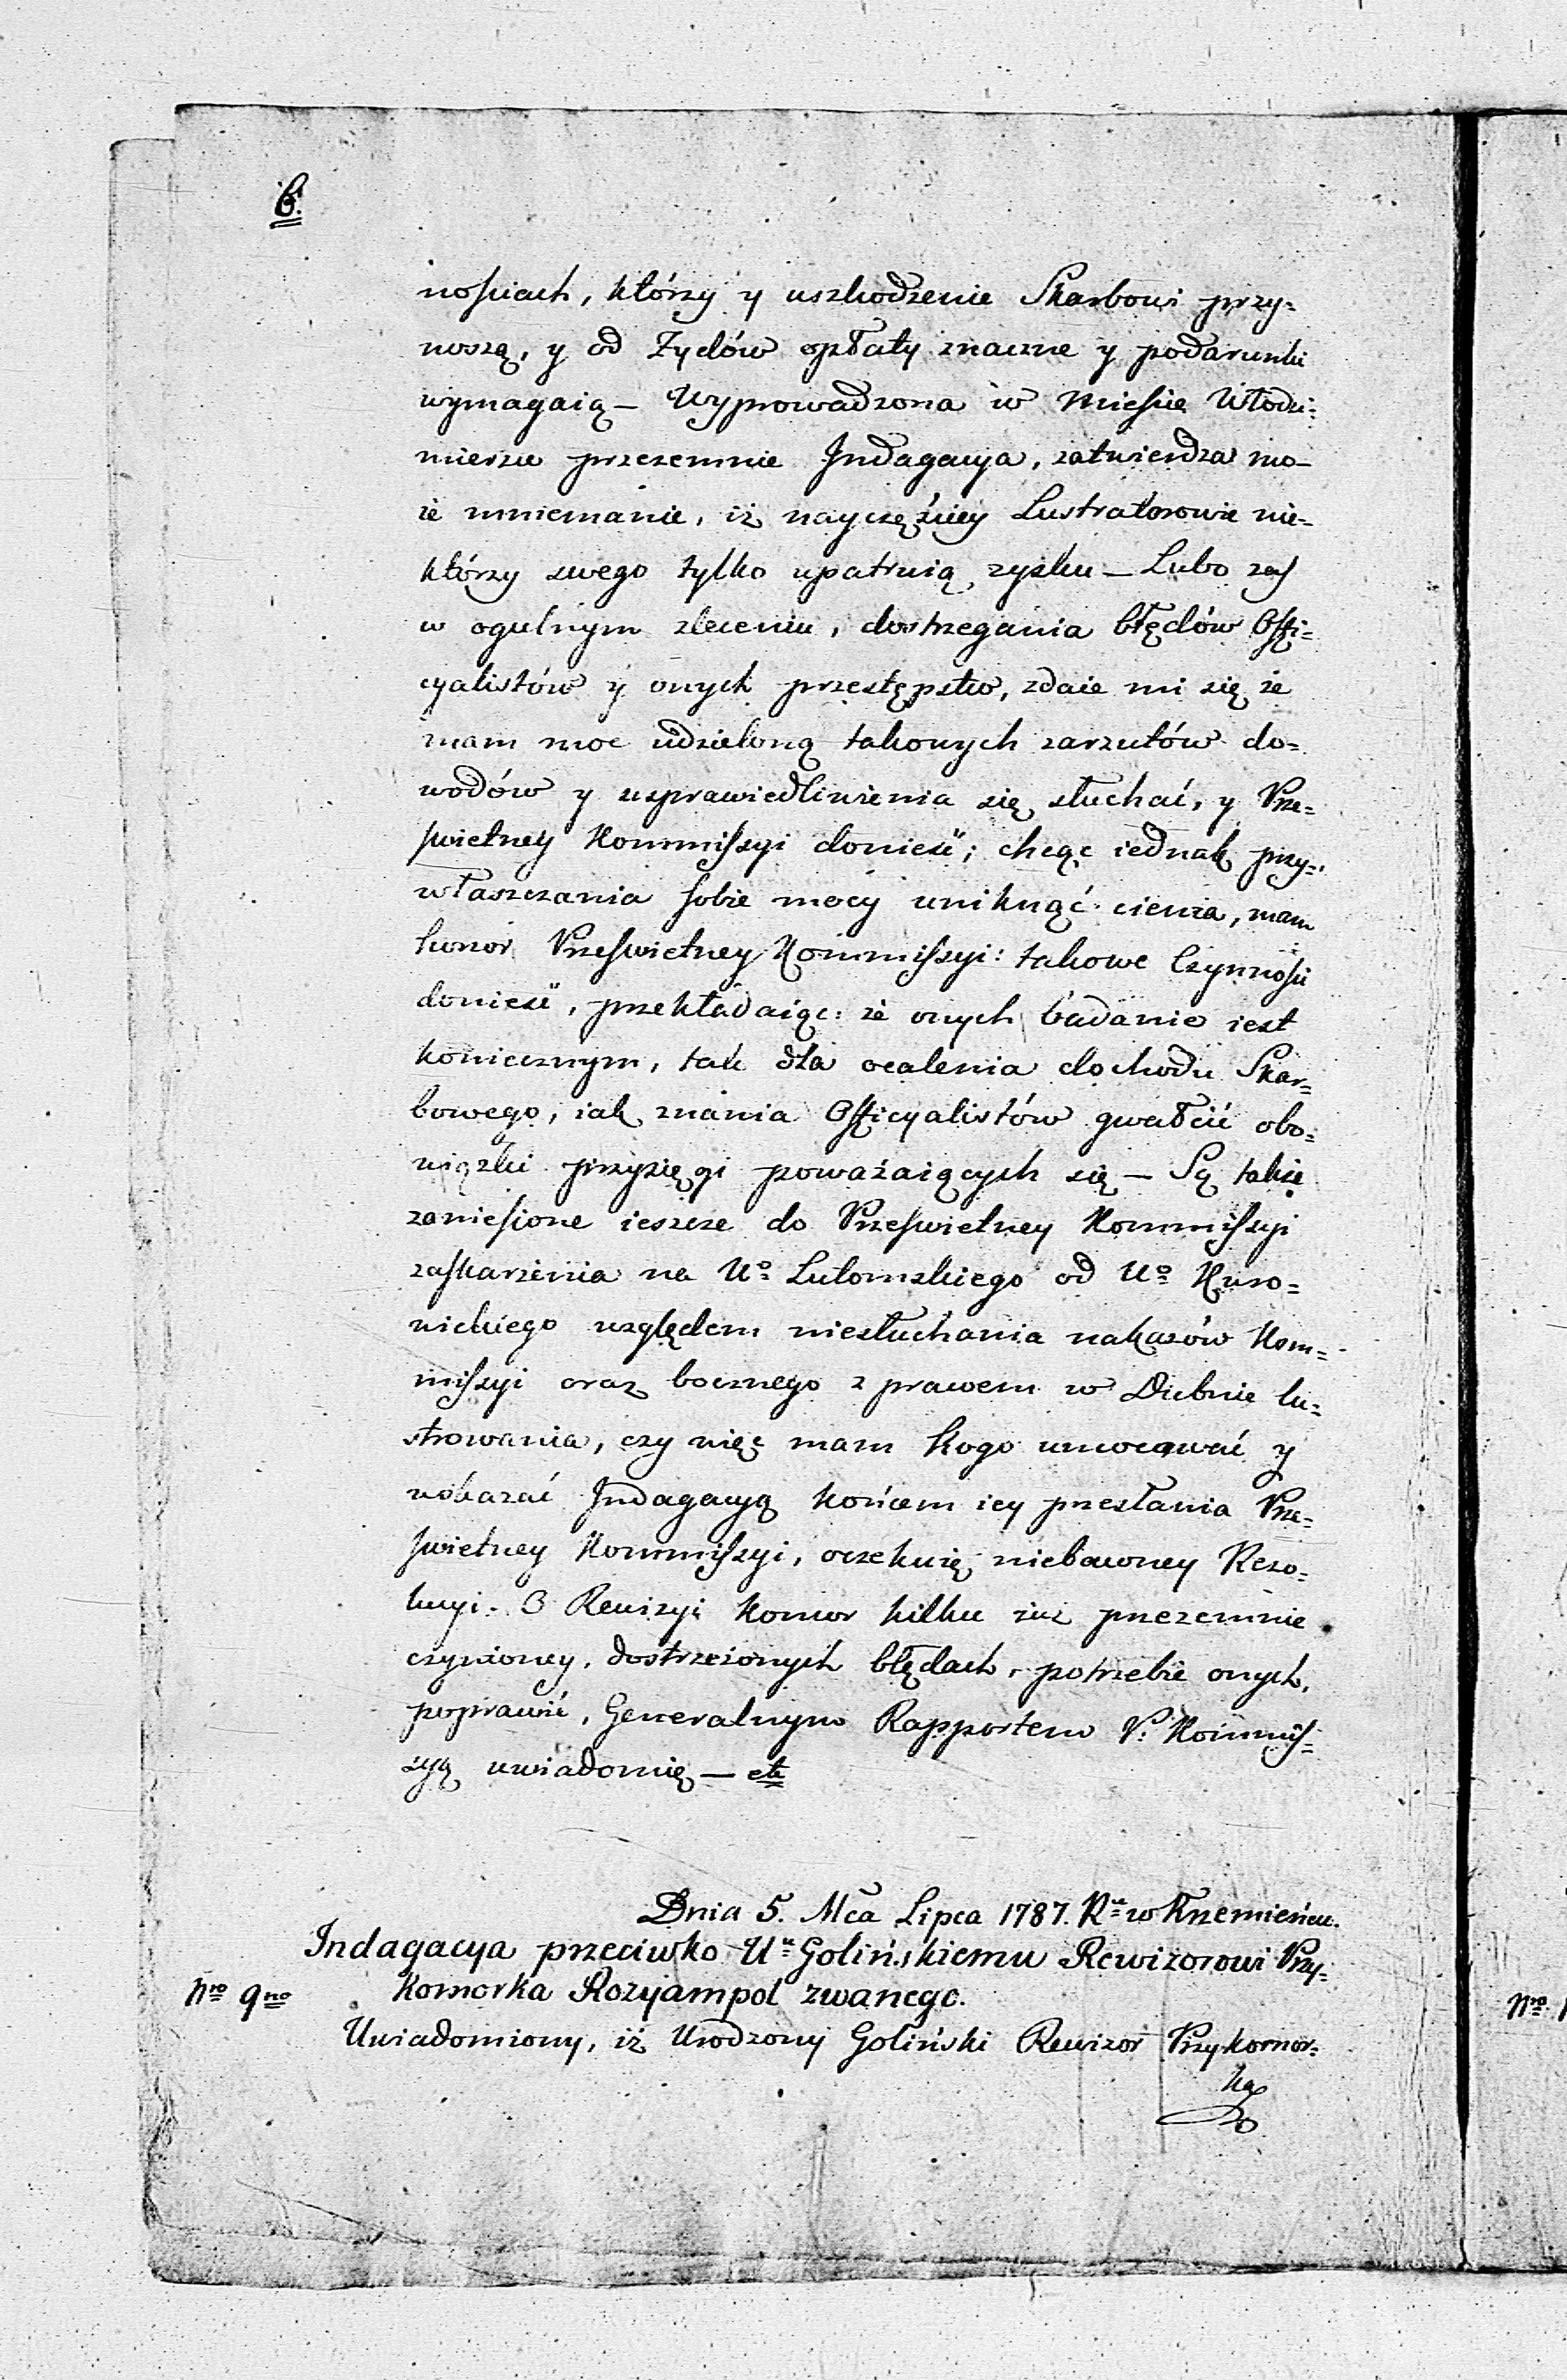 6.
nościach, którzy y uszkodzenie Skarbowi przy=
noszą, y od Zydów opłaty znaczne y podarunki
wymagaią — Wyprowadzona w Mieście Włodzi=
mierzu przezemnie Jndagacya, zatwierdza mo=
ie mniemanie, iż nayczęściey Lustratorowie nie=
którzy swego tylko upatruią zysku — Lubo zaś
w ogulnym zleceniu, dostrzegania błędów Offi=
cyalistów y onych przestępstw, zdaie mi się że
mam moc udzieloną takowych zarzutów do=
wodów y usprawiedliwienia się słuchać, y Prze=
świetney Kommissyi donieść; chcąc iednak przy=
właszczania sobie mocy uniknąć cienia, mam
honor Prześwietney Kommissyi: takowe Czynności
donieść, przekładaiąc: że onych badanie iest
koniecznym, tak dla ocalenia dochodu Skar=
bowego, iak znania Officyalistów gwałcić obo=
wiązki przysięgi poważaiących się — Są także
zaniesione ieszcze do Prześwietney Kommissyi
zaskarżenia na Uo Lutomskiego od Uo Kuro=
wickiego względem niesłuchania nakazów Kom=
missyi oraz bocznego z prawem w Dubnie lu=
strowania, czy więc mam kogo umocować y
wskazać Jndagacyą końcem iey przesłania Prze=
świetney Kommissyi, oczekuię niebawney Rezo=
lucyi. O Rewizyi Komor kilku iuż przezemnie
czynioney, dostrzeżonych błędach, potrzebie onych,
poprawić, Generalnym Rapportem P. Kommis=
syą uwiadomię — etc
Dnia 5. Mca Lipca 1787. Ru w Krzemieńcu.
Indagacya przeciwko Uu Golińskiemu Rewizorowi Przy=
Nro 9no Komorka Rozyampol zwanego.
Uwiadomiony, iż Urodzony Goliński Rewizor Przykomor=
ka
Nro